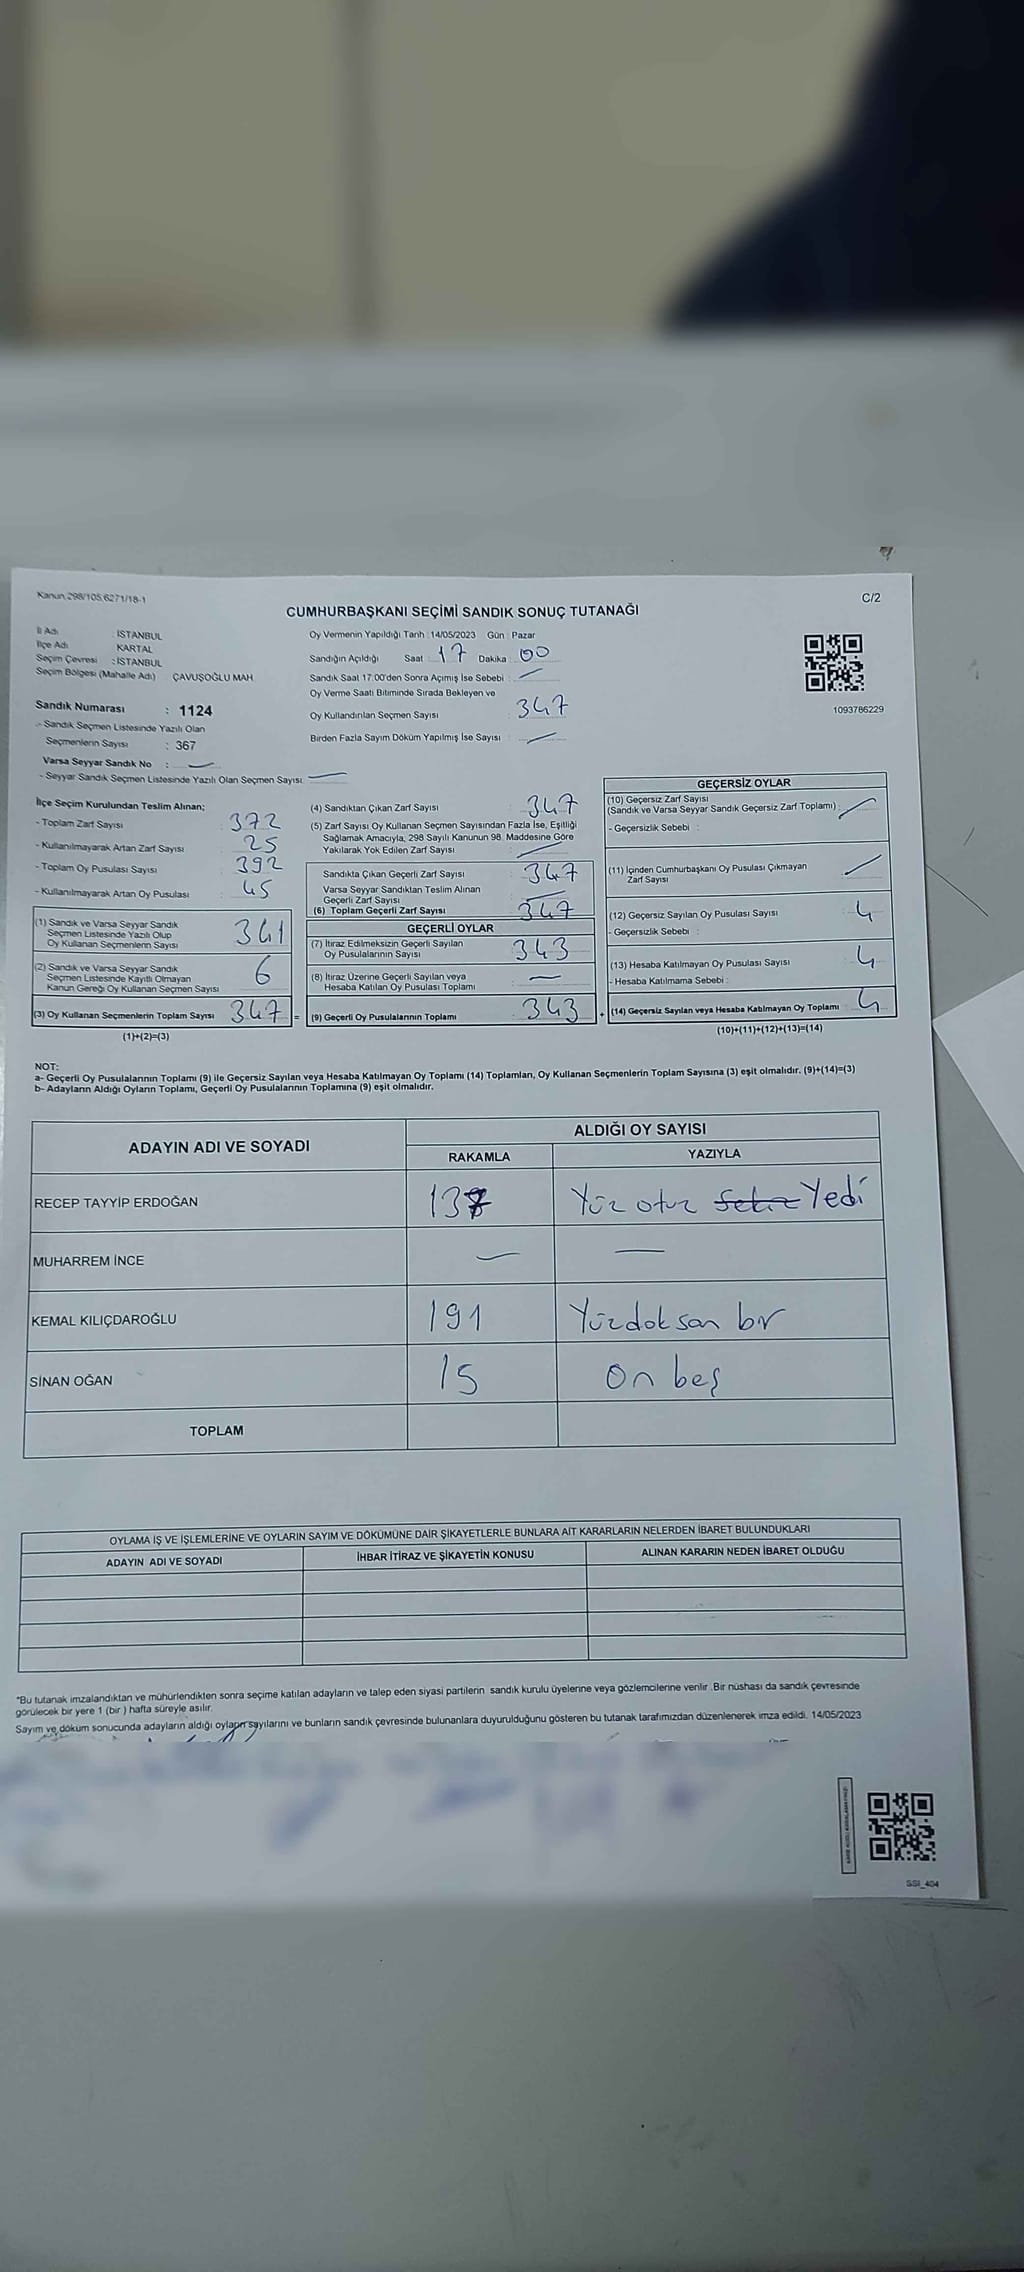 Kanun,298/105,6271/18-1
C/2
CUMHURBAŞKANI SEÇİMİ SANDIK SONUÇ TUTANAĞI
İl Adı : İSTANBUL
İlçe Adı KARTAL
Seçim Çevresi : İSTANBUL
Seçim Bölgesi (Mahalle Adı) ÇAVUŞOĞLU MAH
Sandık Numarası : 1124
- Sandık Seçmen Listesinde Yazılı Olan
Seçmenlerin Sayısı : 367
Varsa Seyyar Sandık No : —
- Seyyar Sandık Seçmen Listesinde Yazılı Olan Seçmen Sayısı: —
Oy Vermenin Yapıldığı Tarih : 14/05/2023 Gün : Pazar
Sandığın Açıldığı Saat : 17 Dakika : 00
Sandık Saat 17:00'den Sonra Açımış İse Sebebi : —
Oy Verme Saati Bitiminde Sırada Bekleyen ve
Oy Kullandırılan Seçmen Sayısı : 347
Birden Fazla Sayım Döküm Yapılmış İse Sayısı : —
1093786229
İlçe Seçim Kurulundan Teslim Alınan;
- Toplam Zarf Sayısı : 372
- Kullanılmayarak Artan Zarf Sayısı : 25
- Toplam Oy Pusulası Sayısı : 392
- Kullanılmayarak Artan Oy Pusulası : 45
(1) Sandık ve Varsa Seyyar Sandık
Seçmen Listesinde Yazılı Olup
Oy Kullanan Seçmenlerin Sayısı 341
(2) Sandık ve Varsa Seyyar Sandık
Seçmen Listesinde Kayıtlı Olmayan
Kanun Gereği Oy Kullanan Seçmen Sayısı 6
(3) Oy Kullanan Seçmenlerin Toplam Sayısı 347 =
(1)+(2)=(3)
(4) Sandıktan Çıkan Zarf Sayısı : 347
(5) Zarf Sayısı Oy Kullanan Seçmen Sayısından Fazla İse, Eşitliği
Sağlamak Amacıyla, 298 Sayılı Kanunun 98. Maddesine Göre
Yakılarak Yok Edilen Zarf Sayısı : —
Sandıkta Çıkan Geçerli Zarf Sayısı 347
Varsa Seyyar Sandıktan Teslim Alınan
Geçerli Zarf Sayısı —
(6) Toplam Geçerli Zarf Sayısı 347
GEÇERLİ OYLAR
(7) İtiraz Edilmeksizin Geçerli Sayılan
Oy Pusulalarının Sayısı : 343
(8) İtiraz Üzerine Geçerli Sayılan veya
Hesaba Katılan Oy Pusulası Toplamı : —
(9) Geçerli Oy Pusulalarının Toplamı : 343 +
GEÇERSİZ OYLAR
(10) Geçersiz Zarf Sayısı
(Sandık ve Varsa Seyyar Sandık Geçersiz Zarf Toplamı) : —
- Geçersizlik Sebebi :
(11) İçinden Cumhurbaşkanı Oy Pusulası Çıkmayan
Zarf Sayısı —
(12) Geçersiz Sayılan Oy Pusulası Sayısı : 4
- Geçersizlik Sebebi :
(13) Hesaba Katılmayan Oy Pusulası Sayısı : 4
- Hesaba Katılmama Sebebi :
(14) Geçersiz Sayılan veya Hesaba Katılmayan Oy Toplamı : 4
(10)+(11)+(12)+(13)=(14)
NOT:
a- Geçerli Oy Pusulalarının Toplamı (9) ile Geçersiz Sayılan veya Hesaba Katılmayan Oy Toplamı (14) Toplamları, Oy Kullanan Seçmenlerin Toplam Sayısına (3) eşit olmalıdır. (9)+(14)=(3)
b- Adayların Aldığı Oyların Toplamı, Geçerli Oy Pusulalarının Toplamına (9) eşit olmalıdır.
ADAYIN ADI VE SOYADI
ALDIĞI OY SAYISI
RAKAMLA YAZIYLA
RECEP TAYYİP ERDOĞAN 137 Yüz otuz sekiz Yedi
MUHARREM İNCE — —
KEMAL KILIÇDAROĞLU 191 Yüzdoksan bir
SİNAN OĞAN 15 On beş
TOPLAM
OYLAMA İŞ VE İŞLEMLERİNE VE OYLARIN SAYIM VE DÖKÜMÜNE DAİR ŞİKAYETLERLE BUNLARA AİT KARARLARIN NELERDEN İBARET BULUNDUKLARI
ADAYIN ADI VE SOYADI İHBAR İTİRAZ VE ŞİKAYETİN KONUSU ALINAN KARARIN NEDEN İBARET OLDUĞU
*Bu tutanak imzalandıktan ve mühürlendikten sonra seçime katılan adayların ve talep eden siyasi partilerin sandık kurulu üyelerine veya gözlemcilerine verilir .Bir nüshası da sandık çevresinde
görülecek bir yere 1 (bir ) hafta süreyle asılır.
Sayım ve döküm sonucunda adayların aldığı oyların sayılarını ve bunların sandık çevresinde bulunanlara duyurulduğunu gösteren bu tutanak tarafımızdan düzenlenerek imza edildi. 14/05/2023
SSI_404